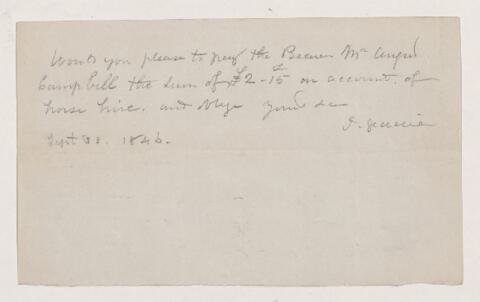 Would you please to pay the Bearer Mr Angus
Campbell the sum of £2-15 on account of
horse hire. and oblige yours &c
Sept 1846.